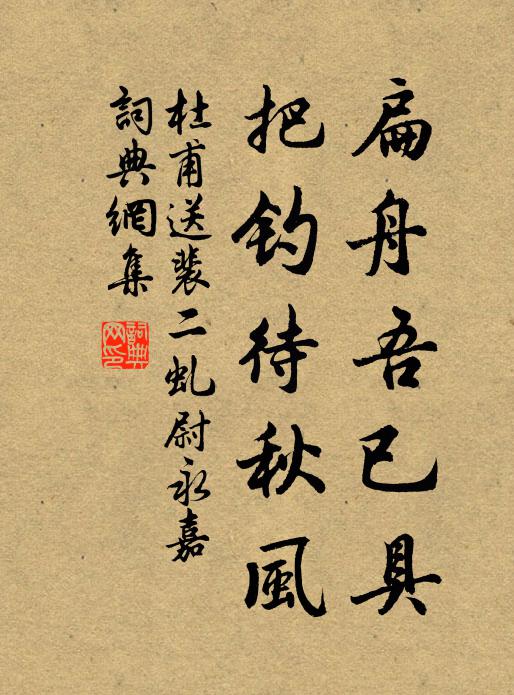 扁舟吾已具
把钓待秋風
杜甫送裴二虬尉永嘉
詞典網集
詞典网印